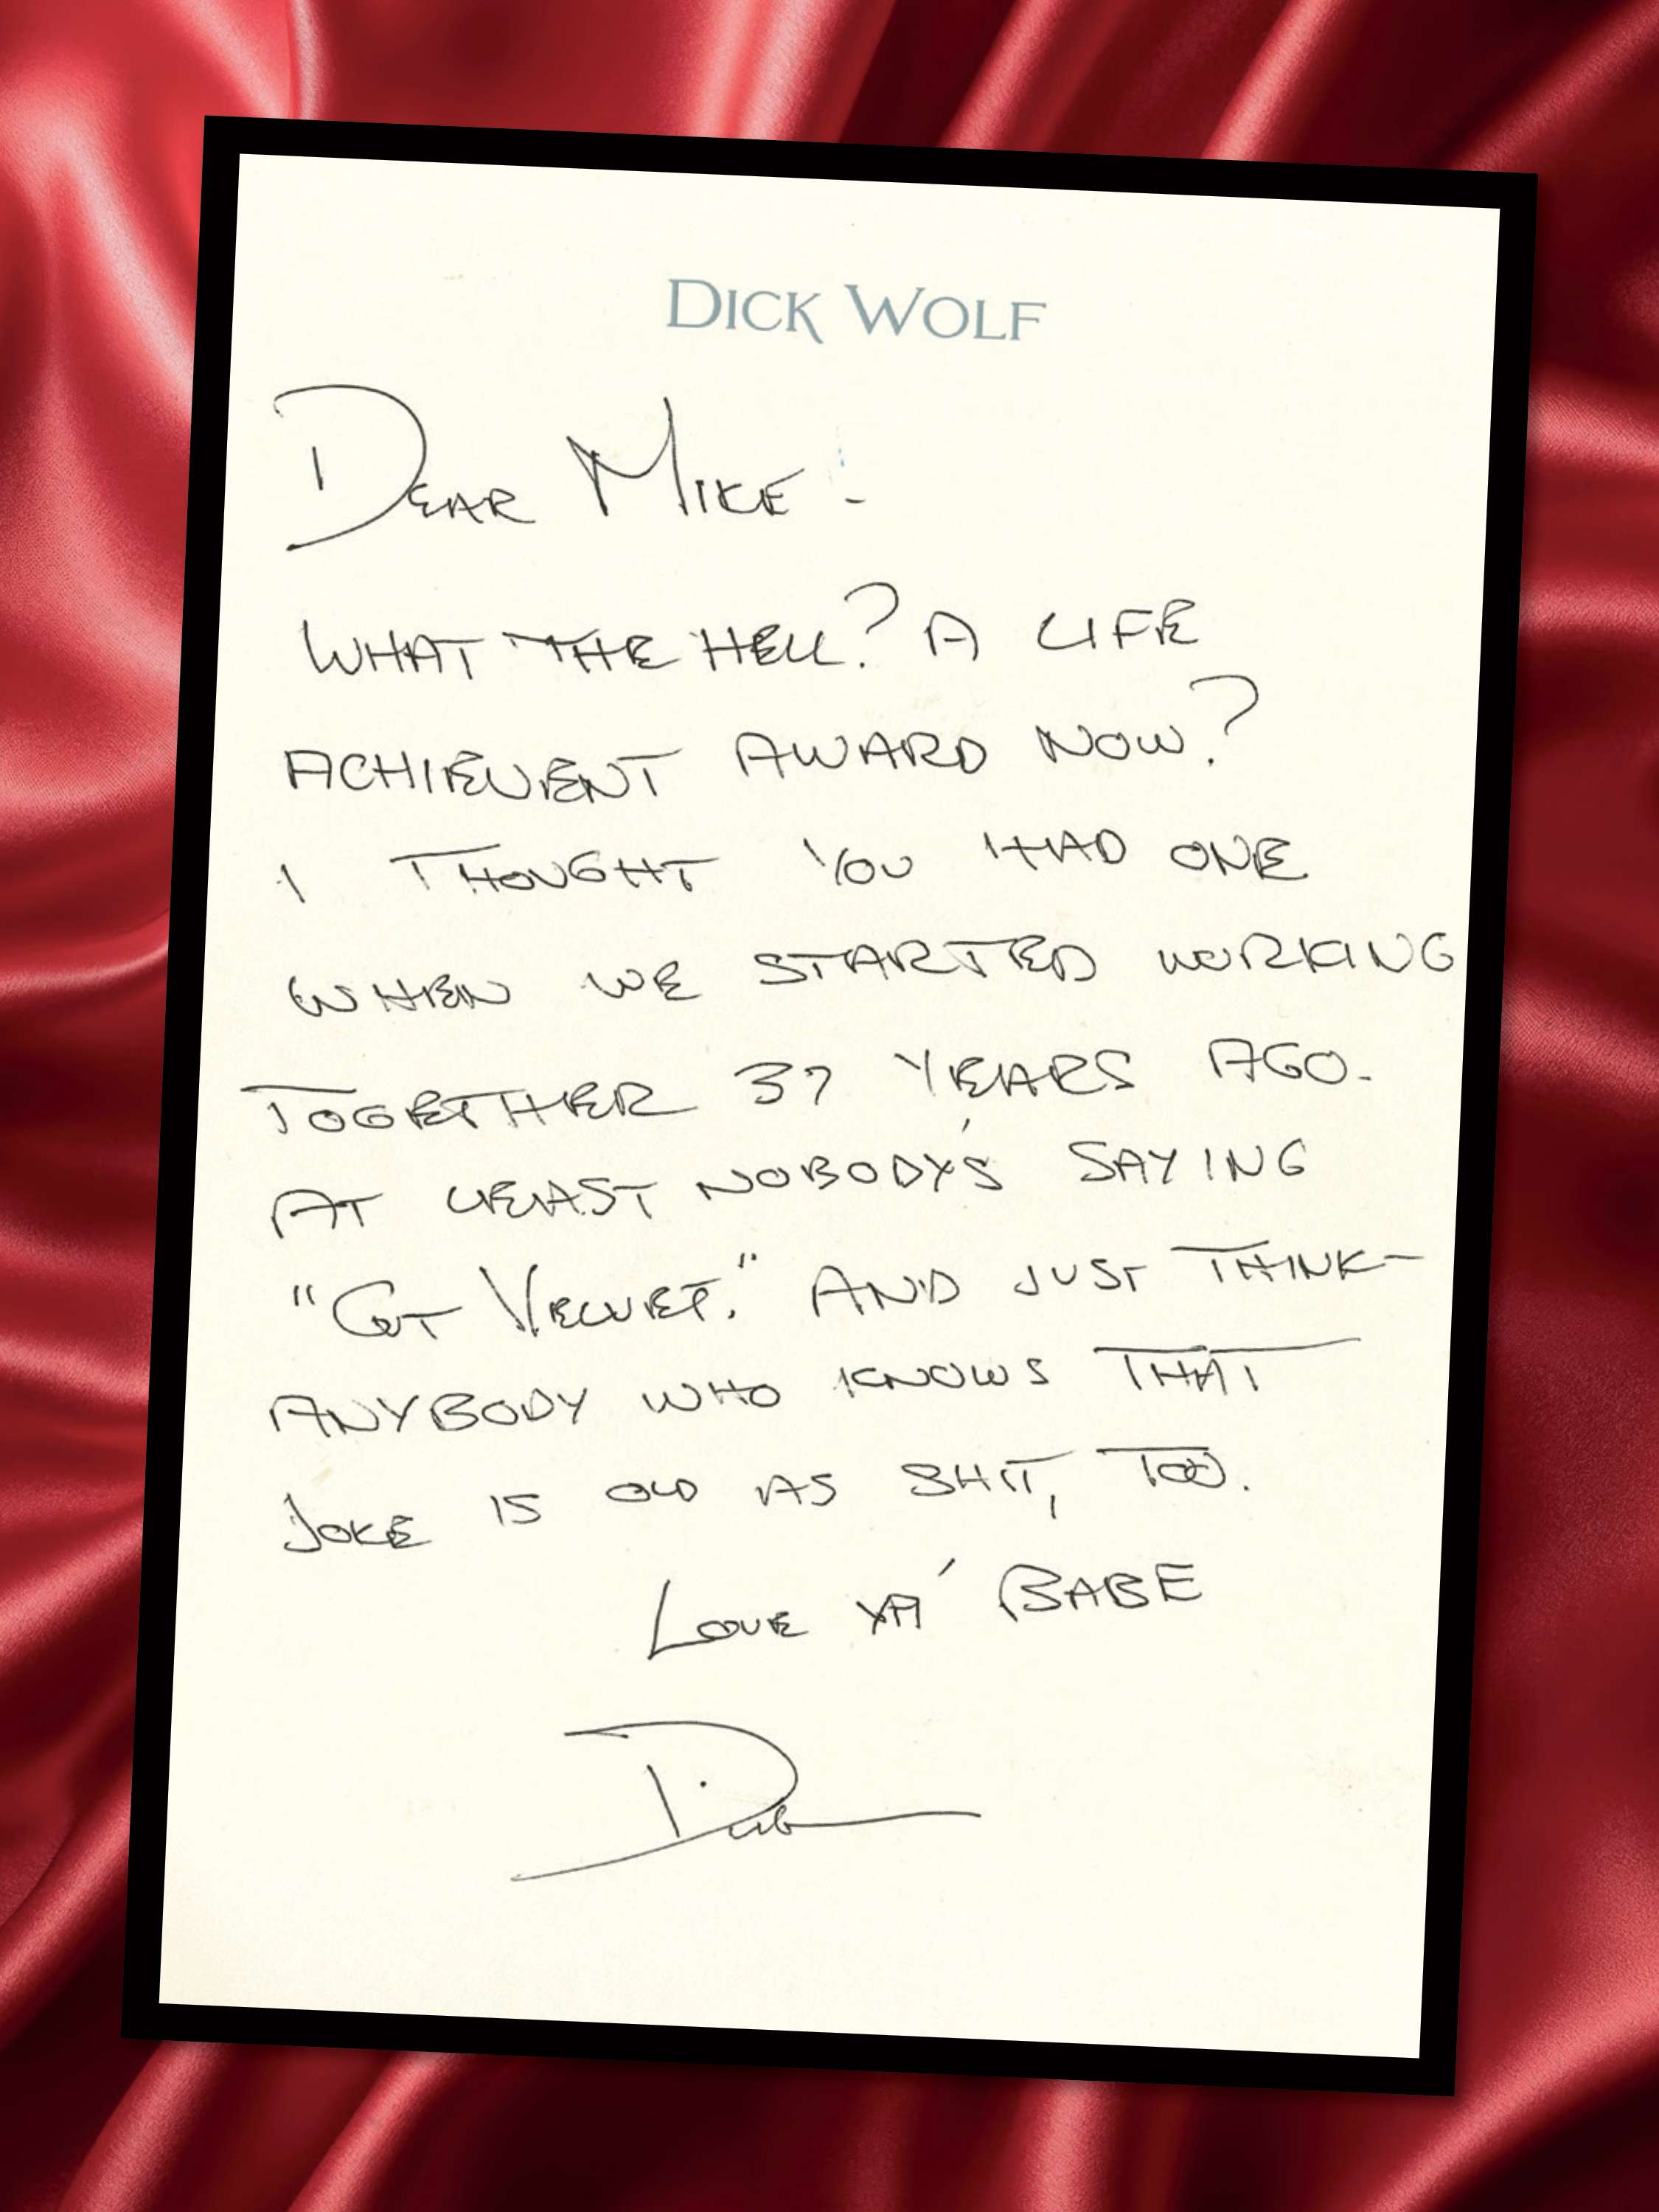 DICK WOLF
DEAR MIKE -
WHAT THE HELL? A LIFE
ACHIEVENT AWARD NOW?
I THOUGHT YOU HAD ONE
WHEN WE STARTED WORKING
TOGETHER 37 YEARS AGO.
AT LEAST NOBODY'S SAYING
"GET VELVET." AND JUST THINK-
ANYBODY WHO KNOWS THAT
JOKE IS OLD AS SHIT, TOO.
LOVE YA' BABE
Dick